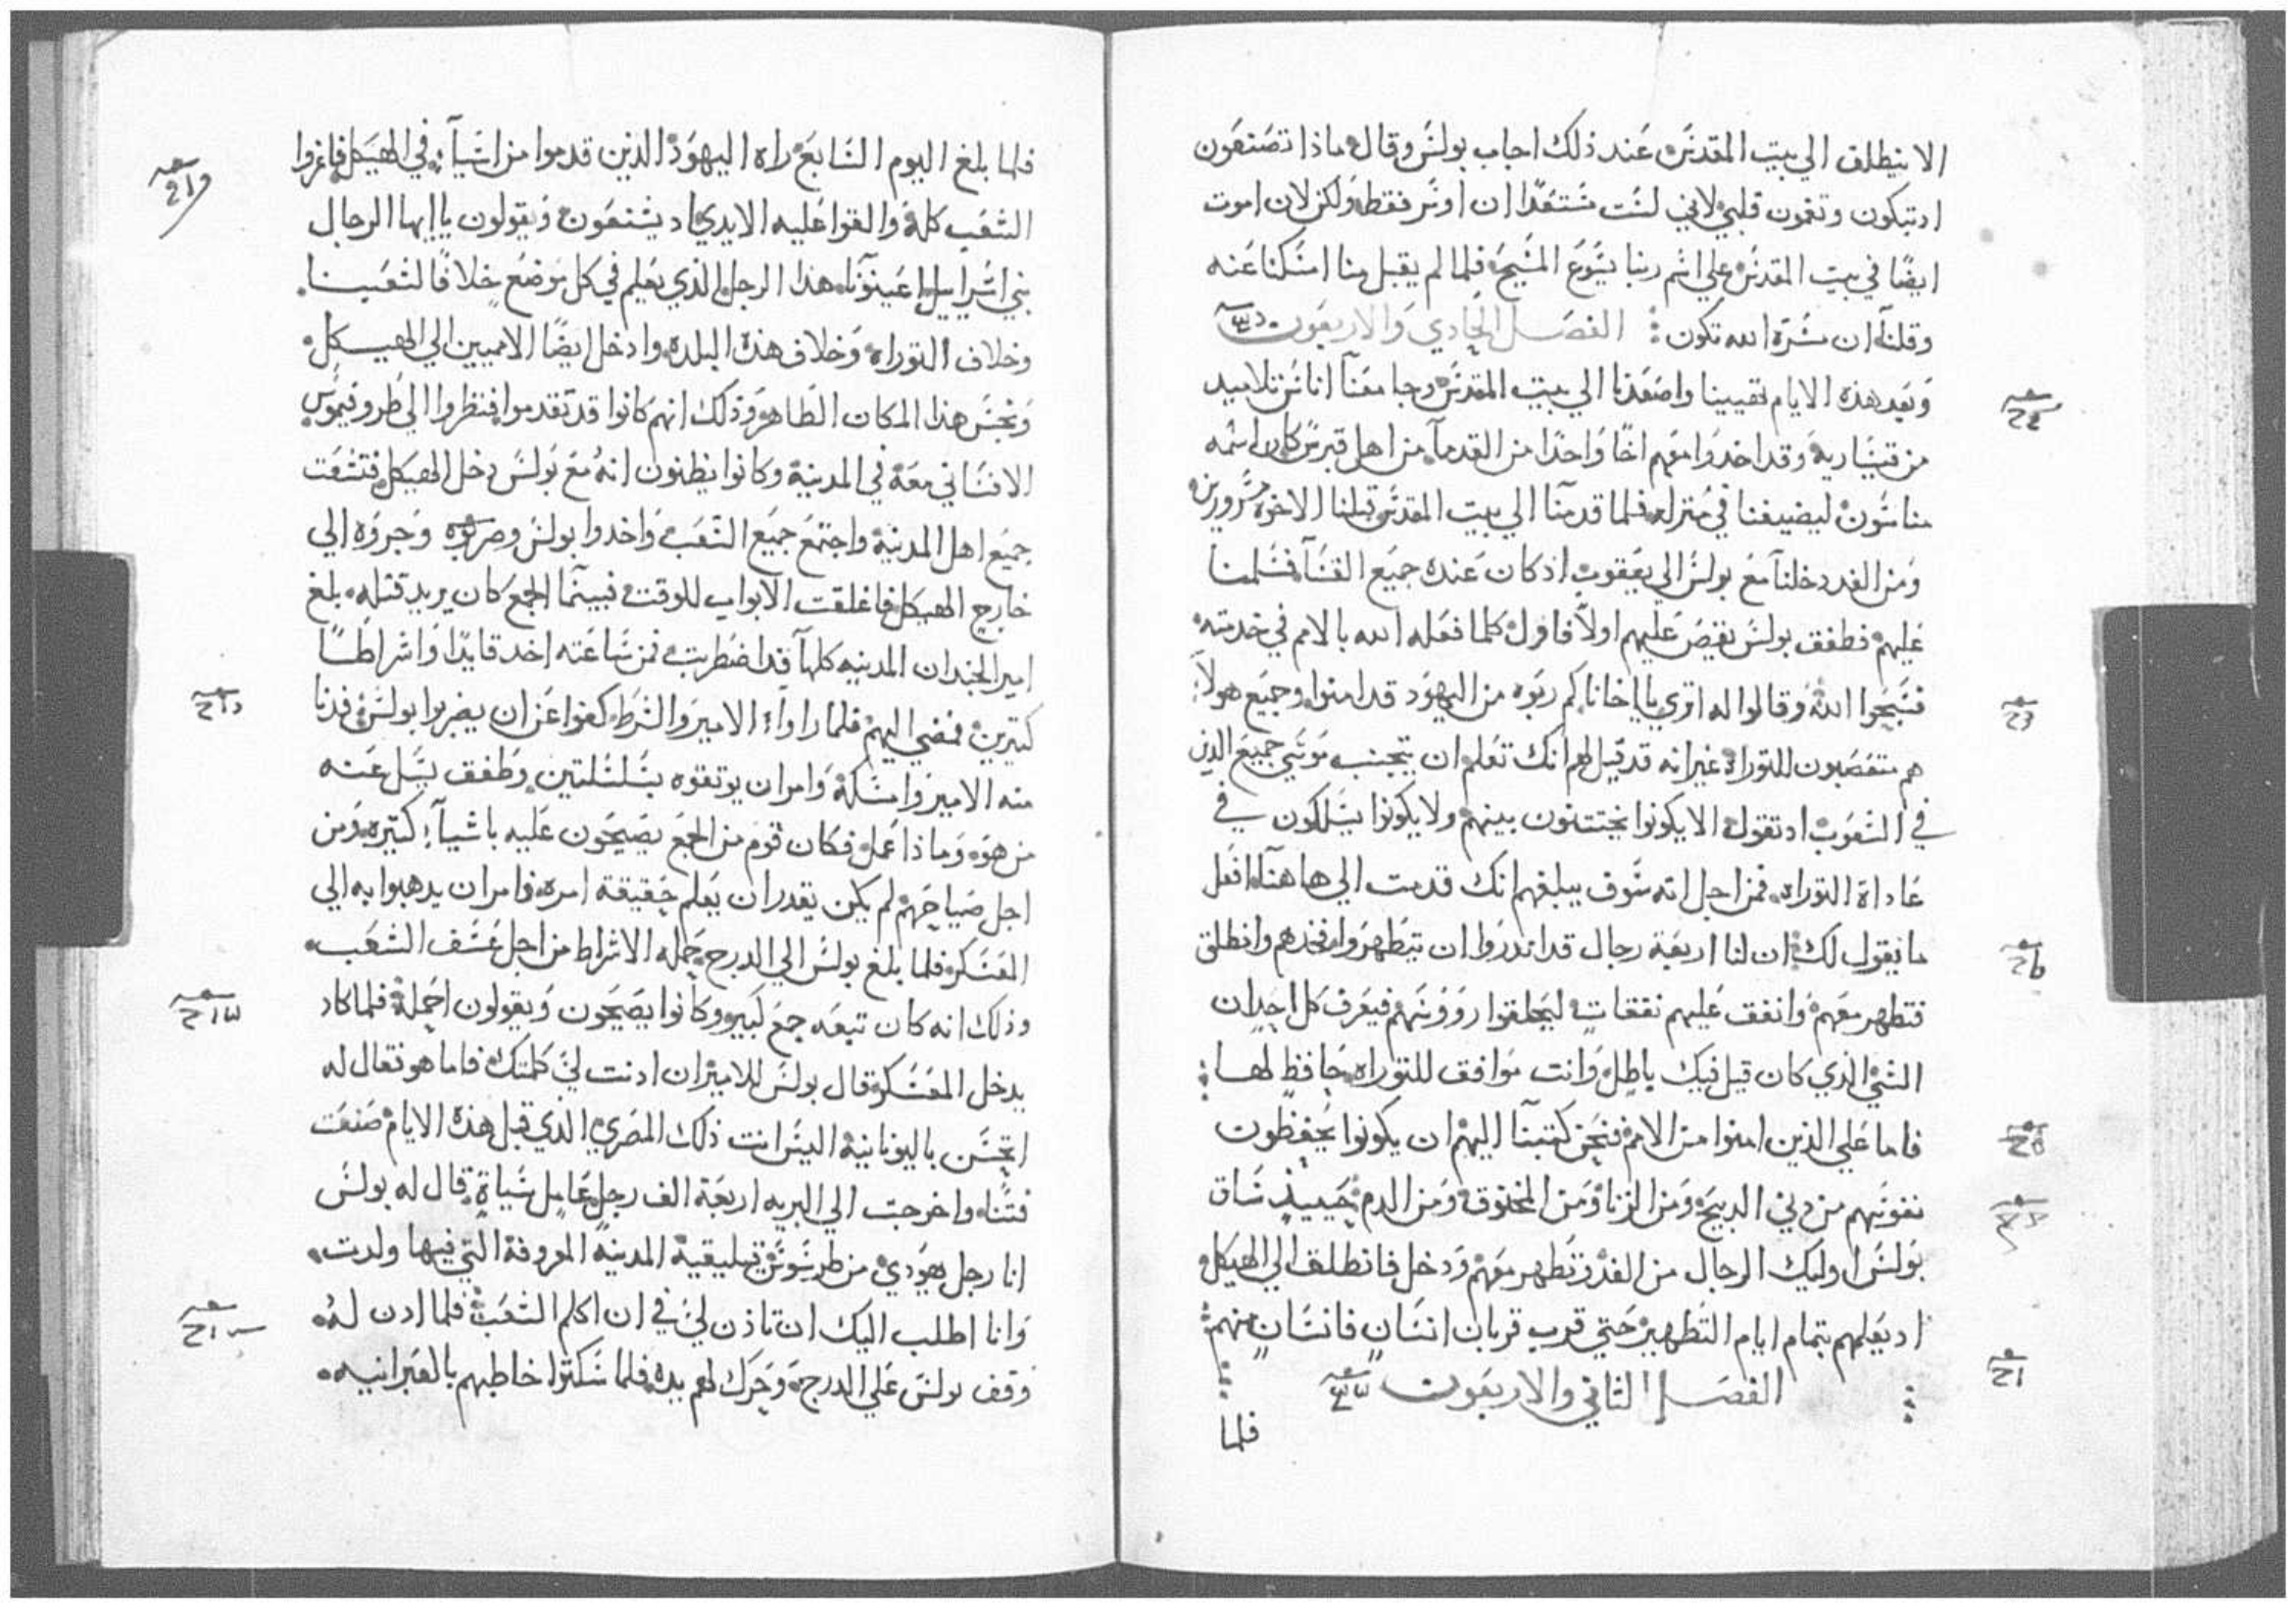 الا ينطلق الي بيت المقدس عند ذلك اجاب بولس وقال ماذا تصنعون
اد تبكون وتغمون قلبي لاني لست مستعدا ان اوسر فقط ولكن لان اموت
ايضا في بيت المقدس علي اسم ربنا يسوع المسيح فلما لم يقبل منا امسكنا عنه
وقلنا ان مسرة الله تكون الفصل الحادي والاربعون
وبعد هذه الايام تهيينا واصعدنا الي بيت المقدس وجا معنا اناس تلاميد
من قيساريه وقد اخدوا معهم اخا واحدا من القدما من اهل قبرس كان اسمه
مناسون ليضيفنا في منزله فلما قدمنا الي بيت المقدس قبلنا الاخوه مسرورين
ومن الغد دخلنا مع بولس الي يعقوب اد كان عنده جميع القسا فسلمنا
عليهم فطفق بولس يقص عليهم اولا فاول كلما فعله الله بالامم في خدمته
فسبحوا الله وقالوا له اتري يا اخانا كم ربوه من اليهود قد امنوا وجميع هولا
هم متعصبون للتوراه غير انه قد قيل لهم انك تعلم ان يتجنب موسي جميع الذين
في الشعوب اد تقول الا يكونوا يختتنون بينهم ولا يكونوا يسلكون في
عاداة التوراه فمن اجل انه سوف يبلغهم انك قدمت الي هاهنا افعل
ما نقول لك ان لنا اربعة رجال قد اندروا ان يتطهروا فخدهم وانطلق
فتطهر معهم وانفق عليهم نفقات ليحلقوا روؤسهم فيعرف كل احد ان
الشي الذي كان قيل فيك باطل وانت موافق للتوراه حافظ لها
فاما علي الذين امنوا من الامم فنحن كتبنا اليهم ان يكونوا يحفظون
نفوسهم من دبي الدبيح ومن الزنا ومن المخنوق ومن الدم حينيذ ساق
بولس اوليك الرجال من الغد وتطهر معهم ودخل فانطلق الي الهيكل
اد يعلمهم بتمام ايام التطهير حتي قرب قربان انسان فانسان منهم
الفصل الثاني والاربعون
فلما
فلما بلغ اليوم السابع راه اليهود الذين قدموا من اسيا في الهيكل فاغروا
الشعب كله والقوا عليه الايدي اد يشنعون ويقولون يا ايها الرجال
بني اسراييل اعينونا هذا الرجل الذي يعلم في كل موضع خلافا لشعبنا
وخلاف التوراه وخلاف هذه البلده وادخل ايضا الامميين الي الهيكل
ونجس هذا المكان الطاهر وذلك انهم كانوا قد تقدموا فنظروا الي طروفيموس
الافساني معه في المدينة وكانوا يظنون انه مع بولس دخل الهيكل فتشغت
جميع اهل المدينة واجتمع جميع الشعب واخدوا بولس وضربوه وجروه الي
خارج الهيكل فاغلقت الابواب للوقت فبينما الجمع كان يريد قتله بلغ
امير الجند ان المدينه كلها قد اضطربت فمن ساعته اخد قايدا واشراطا
كتيرين فمضي اليهم فلما راوا الامير والشرط كفوا عن ان يضربوا بولس فدنا
منه الامير وامسكه وامر ان يوتقوه بسلسلتين وطفق يسل عنه
من هو وماذا عمل فكان قوم من الجمع يصيحون عليه باشيا كتيره ومن
اجل صياحهم لم يكن يقدر ان يعلم حقيقة امره فامر ان يدهبوا به الي
المعسكر فلما بلغ بولس الي الدرج حمله الاشراط من اجل عسف الشعب
وذلك انه كان تبعه جمع كبير وكانوا يصيحون ويقولون احمله فلما كاد
يدخل المعسكر قال بولس للامير ان ادنت لي كلمتك فاما هو فقال له
اتحسن باليونانية اليس انت ذلك المصري الذي قبل هذه الايام صنعت
فتنا واخرجت الي البريه اربعة الف رجل عامل سياة قال له بولس
انا رجل يهودي من طرسوس قيليقية المدينة المعروفة التي فيها ولدت
وانا اطلب اليك ان تاذن لي في ان اكلم الشعب فلما ادن له
وقف بولس علي الدرج وحرك لهم يده فلما سكتوا خاطبهم بالعبرانيه